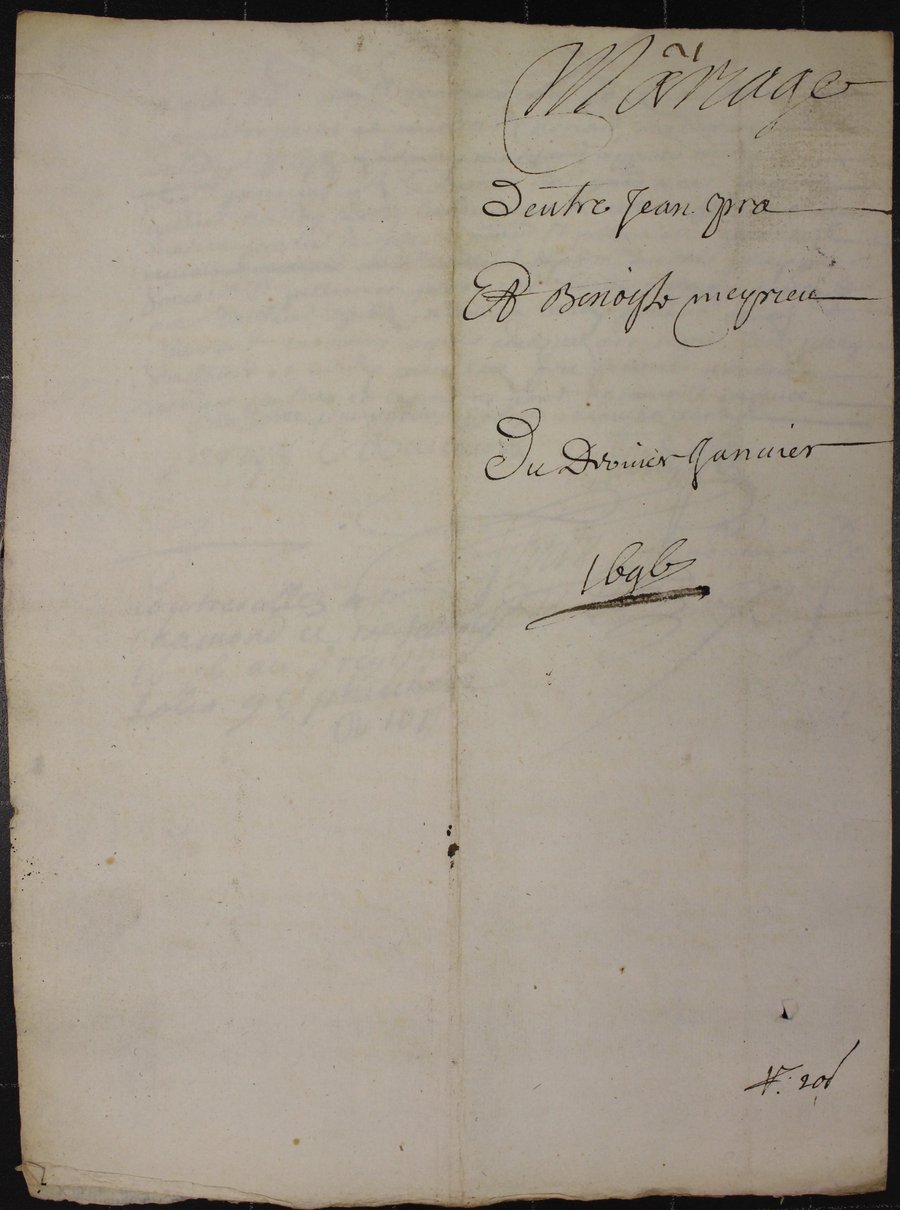 Mariage
Dentre Jean pra
Et Benoiste meyrieu
Du Dernier Januier
1696